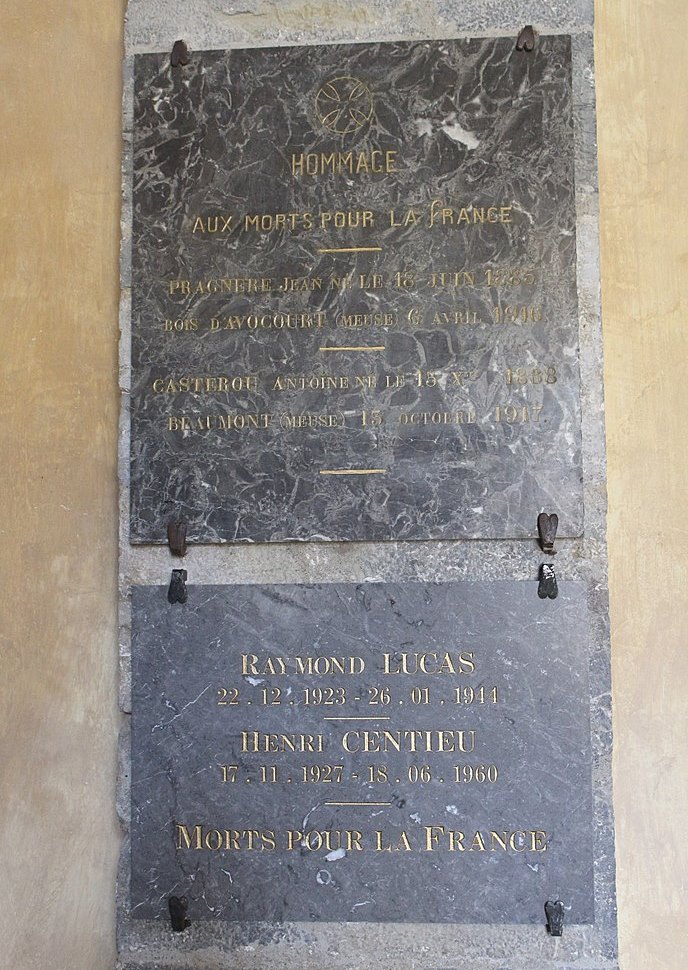 HOMMAGE
AUX MORTS POUR LA FRANCE
PRAGNERE JEAN NE LE 18 JUIN
BOIS D'AVOCOURT (MEUSE) 6 AVRIL 1916
CASTEROU ANTOINE NE LE 15 Xbre 1888
BEAUMONT (MEUSE) 13 OCTOBRE 1917
RAYMOND LUCAS
22.12.1923 - 26.01.1944
HENRI CENTIEU
17.11.1927 - 18.06.1960
MORTS POUR LA FRANCE